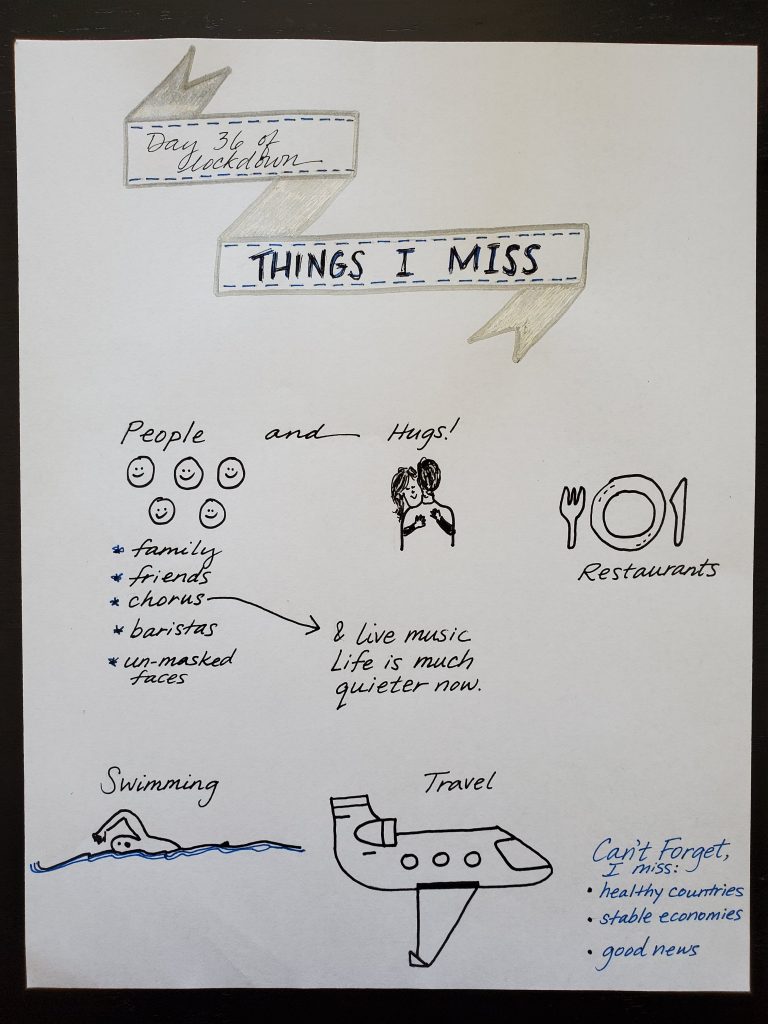 Day 36 of
lockdown
THINGS I MISS
People and Hugs!
* family
* friends
* chorus
* baristas
* un-masked
faces
& live music
Life is much
quieter now.
Restaurants
Swimming
Travel
Can't Forget,
I miss:
• healthy countries
• stable economies
• good news